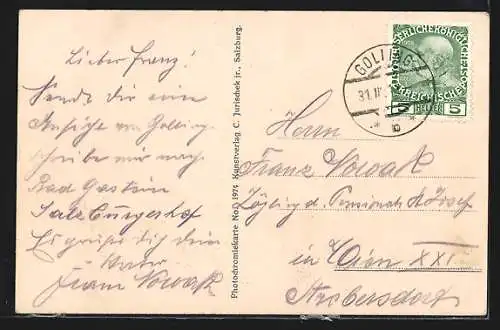 Lieber Franz!
Sende dir eine
Ansicht von Golling
schreibe mir nach
Bad Gastein
Salzburgerhof
Es grüßt dich dein
Vater
Franz Nowak
Photochromiekarte No. 1974 Kunstverlag C. Jurischek jr., Salzburg.
GOLLING
31.
b
KAISERLICHE KÖNIGLICHE
ÖSTERREICHISCHE POST
5 HELLER 5
Herrn
Franz Nowak
Zögling d. Pensionats St. Josef
in Wien XXI
Strebersdorf